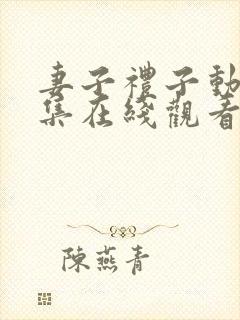 妻子禮子動
集在綫觀看
陳燕青